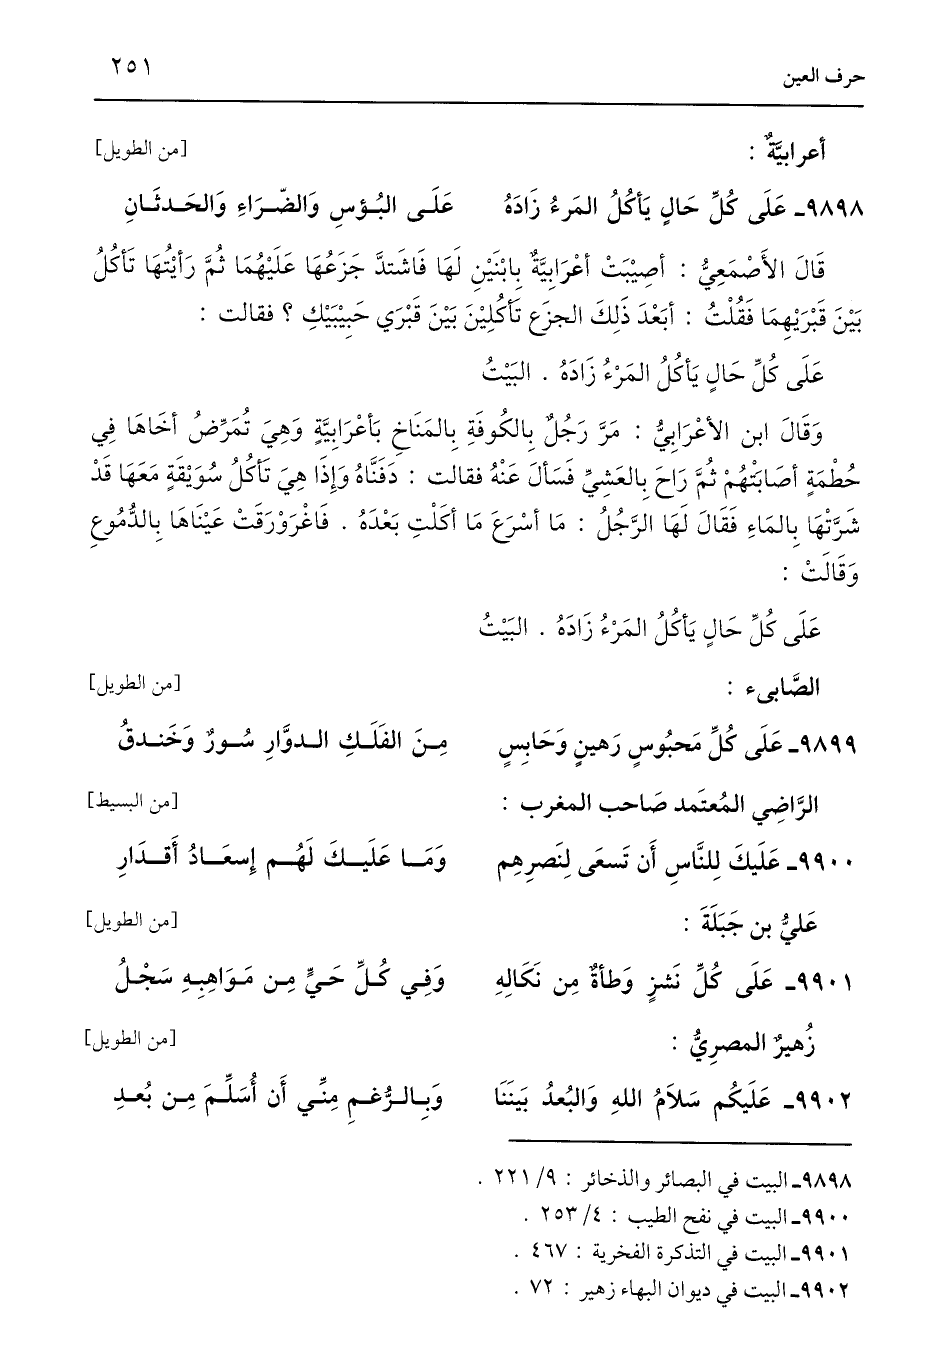 حرف العين ٢٥١
أعرابيَّةٌ : [من الطويل]
٩٨٩٨ـ عَلَى كُلِّ حَالٍ يَأكُلُ المَرءُ زَادَهُ عَلَى البُؤسِ وَالضّرَاءِ وَالحَدثَانِ
قَالَ الأَصْمَعِيُّ : أصِيْبَتْ أعْرَابِيَّةٌ بِابْنَيْنِ لَهَا فَاشتدَّ جَزَعُهَا عَلَيْهُمَا ثُمَّ رَأيْتُهَا تَأكُلُ
بَيْنَ قَبْرَيْهِمَا فَقُلْتُ : أبَعْدَ ذَلِكَ الجزَعِ تَأكُلِيْنَ بَيْنَ قَبْرَي حَبِيْبَيْكِ ؟ فقالت :
عَلَى كُلِّ حَالٍ يَأكُلُ المَرْءُ زَادَهُ . البَيْتُ
وَقَالَ ابن الأعْرَابِيُّ : مَرَّ رَجُلٌ بِالكُوفَةِ بِالمَنَاخِ بَأعْرَابِيَّةٍ وَهِيَ تُمَرِّضُ أخَاهَا فِي
حُطْمَةٍ أصَابَتْهُمْ ثُمَّ رَاحَ بِالعَشِيِّ فَسَألَ عَنْهُ فقالت : دَفَنَّاهُ وَإذَا هِيَ تَأكُلُ سُوَيْقَةٍ مَعَهَا قَدْ
شَرَّتْهَا بِالمَاءِ فَقَالَ لَهَا الرَّجُلُ : مَا أسْرَعَ مَا أكَلْتِ بَعْدَهُ . فَاغْرَوْرَقَتْ عَيْنَاهَا بِالدُّمُوعِ
وَقَالَتْ :
عَلَى كُلِّ حَالٍ يَأكُلُ المَرْءُ زَادَهُ . البَيْتُ
الصَّابىء : [من الطويل]
٩٨٩٩ـ عَلَى كُلِّ مَحبُوسٍ رَهينٍ وَحَابِسٍ مِنَ الفَلَكِ الدوَّارِ سُورٌ وَخَندقُ
الرَّاضِي المُعتَمد صَاحب المغرب : [من البسيط]
٩٩٠٠ـ عَلَيكَ لِلنَّاسِ أن تَسعَى لِنَصرِهِم وَمَا عَلَيكَ لَهُم إسعَادُ أقدَارِ
عَليُّ بن جَبَلَةَ : [من الطويل]
٩٩٠١ـ عَلَى كُلِّ نَشزٍ وَطأةٌ مِن نَكَالِهِ وَفِي كُلِّ حَيٍّ مِن مَوَاهِبِهِ سَجْلُ
زُهيرٌ المصرِيُّ : [من الطويل]
٩٩٠٢ـ عَلَيكُم سَلاَمُ اللهِ وَالبُعدُ بَينَنَا وَبِالرُّغمِ مِنِّي أن أُسَلِّمَ مِن بُعدِ
٩٨٩٨ـ البيت في البصائر والذخائر : ٩/ ٢٢١ .
٩٩٠٠ـ البيت في نفح الطيب : ٤/ ٢٥٣ .
٩٩٠١ـ البيت في التذكرة الفخرية : ٤٦٧ .
٩٩٠٢ـ البيت في ديوان البهاء زهير : ٧٢ .